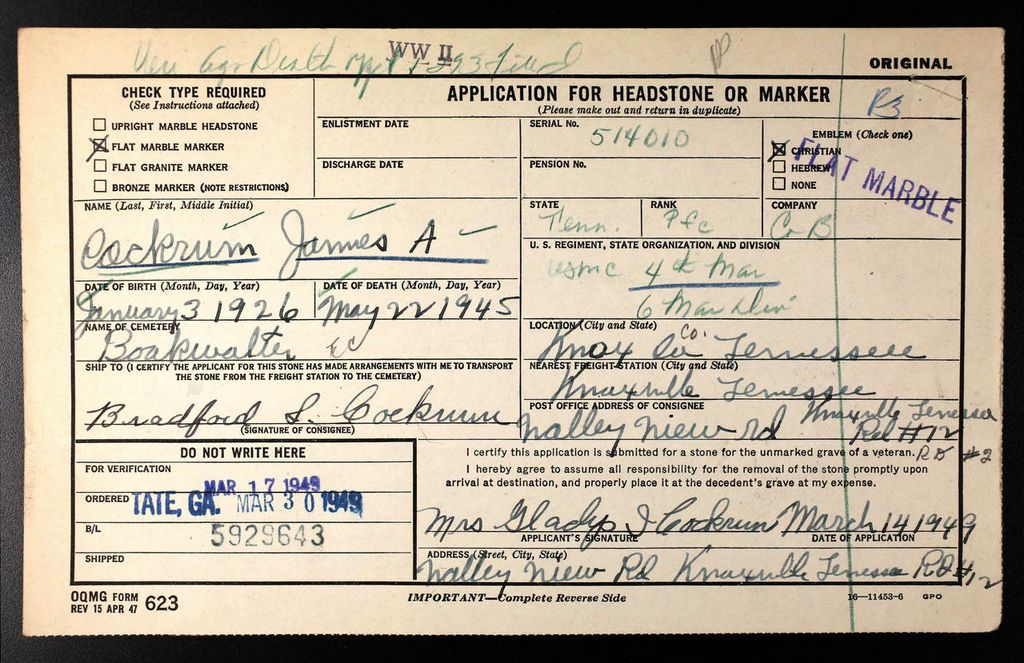 WW II
ORIGINAL
CHECK TYPE REQUIRED
(See Instructions attached)
UPRIGHT MARBLE HEADSTONE
FLAT MARBLE MARKER
FLAT GRANITE MARKER
BRONZE MARKER (NOTE RESTRICTIONS)
APPLICATION FOR HEADSTONE OR MARKER
(Please make out and return in duplicate)
ENLISTMENT DATE
DISCHARGE DATE
SERIAL No.
514010
PENSION No.
EMBLEM (Check one)
CHRISTIAN
HEBREW
NONE
FLAT MARBLE
NAME (Last, First, Middle Initial)
Cockrum James A
STATE
Tenn.
RANK
Pfc
COMPANY
Co B
U. S. REGIMENT, STATE ORGANIZATION, AND DIVISION
USMC 4th Mar
6 Mar Div
DATE OF BIRTH (Month, Day, Year)
January 3 1926
DATE OF DEATH (Month, Day, Year)
May 22 1945
NAME OF CEMETERY
Boakwalter
LOCATION (City and State)
Knox Co Co. Tennessee
SHIP TO (I CERTIFY THE APPLICANT FOR THIS STONE HAS MADE ARRANGEMENTS WITH ME TO TRANSPORT
THE STONE FROM THE FREIGHT STATION TO THE CEMETERY)
Bradford S. Cockrum
(SIGNATURE OF CONSIGNEE)
NEAREST FREIGHT STATION (City and State)
Knoxville Tennessee
POST OFFICE ADDRESS OF CONSIGNEE
Knoxville Tennessee
Valley View rd Rd #12
DO NOT WRITE HERE
FOR VERIFICATION
MAR 17 1949
ORDERED
TATE, GA. MAR 30 1949
B/L
5929643
SHIPPED
I certify this application is submitted for a stone for the unmarked grave of a veteran. RD #2
I hereby agree to assume all responsibility for the removal of the stone promptly upon
arrival at destination, and properly place it at the decedent's grave at my expense.
Mrs Gladys I Cockrum March 14 1949
APPLICANT'S SIGNATURE
DATE OF APPLICATION
ADDRESS (Street, City, State)
Valley View Rd Knoxville Tennessee Rd #12
OQMG FORM
REV 15 APR 47 623
IMPORTANT—Complete Reverse Side
16—11453-6 GPO